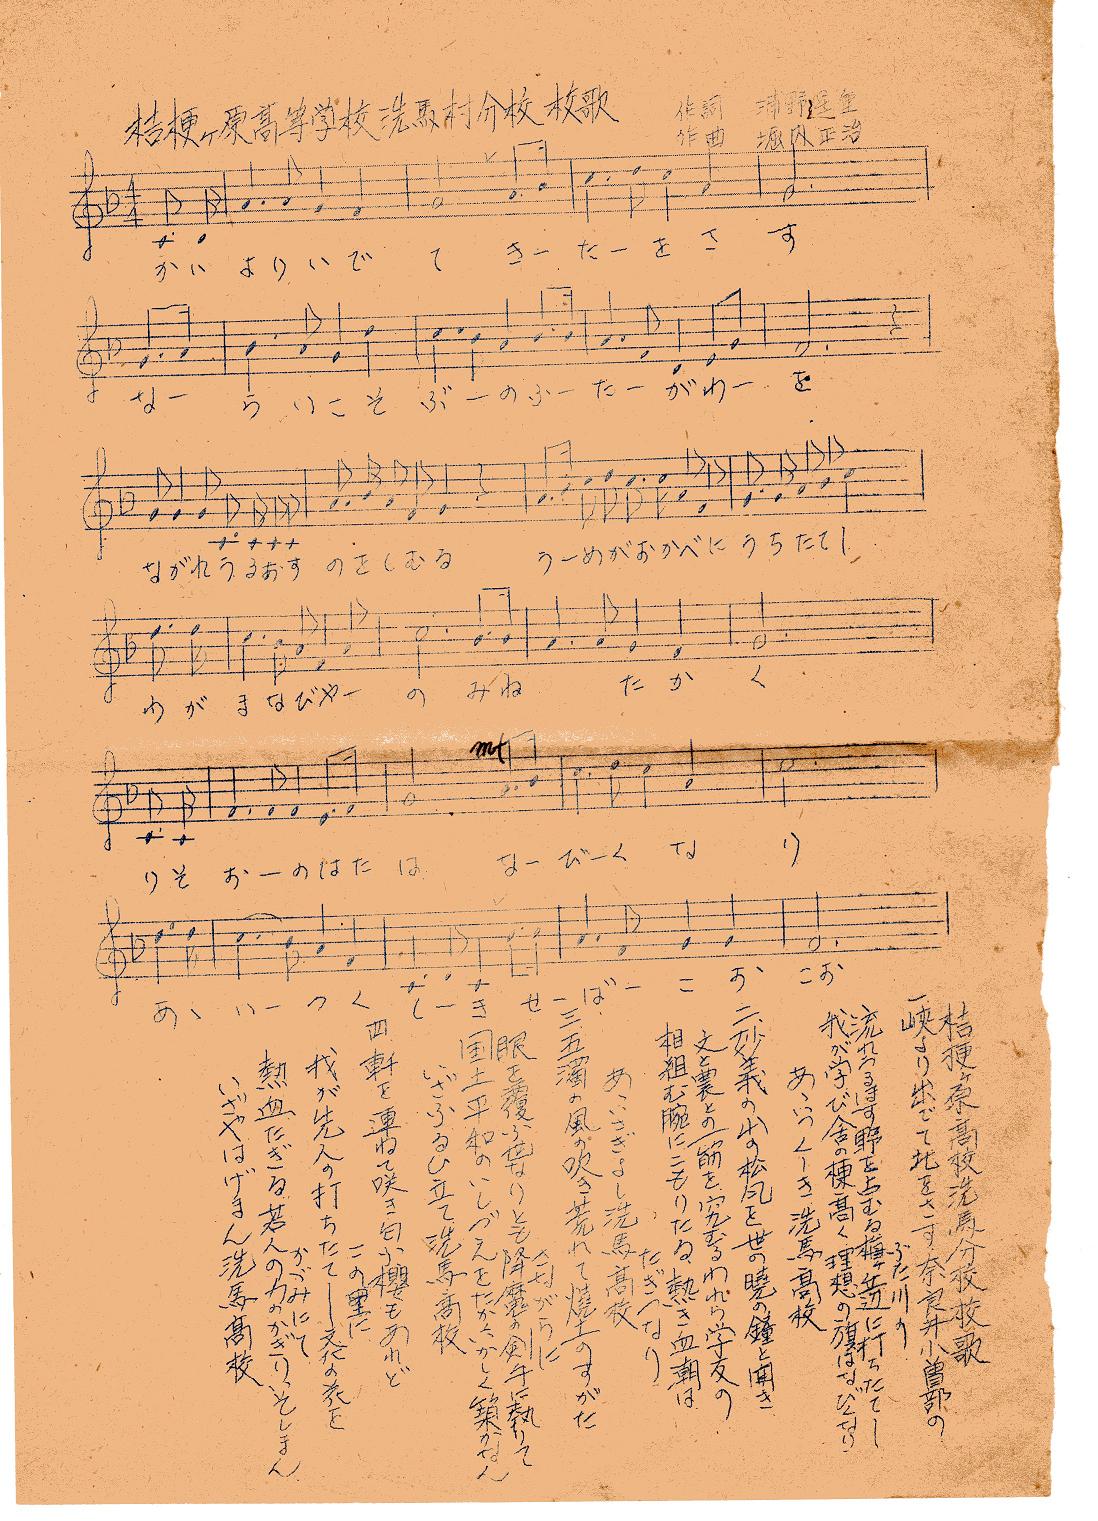 桔梗ヶ原高等学校洗馬村分校 校歌
作詞 浦野
作曲 堀内正治
かい よりいで て きーたーを さ す
なー らいこそ ぶーのふーたーがわー を
ながれうるおす のをしむる うーめがおかべに うちたてし
わが まなびやー の みね たか く
mf
りそ おーのはた は なーびーく な り
あゝ いーつく しーき せーばー こ お こお
桔梗ヶ原高校洗馬分校校歌
一 峡より出でて北をさす奈良井小曽部の
ぶた川の
流れうるほす野を占むる梅ヶ岡辺に打ちたてし
我が学び舎の棟高く理想の旗はなびくなり
あゝいつくしき洗馬高校
二、妙義の山の松風を世の暁の鐘と聞き
文と農との一筋を究むるわれら学友の
相組む腕にこもりたる熱き血潮は
たぎつなり
あゝいさぎよし洗馬高校
三 五濁の風の吹き荒れて焼土のすがた
さながらに
眼を覆ふ世なりとも降魔の剣手に執りて
国土平和のいしづえをたかいかしく築かなん
いざふるひ立て洗馬高校
四 軒を連ねて咲き匂ふ櫻もあれど
この里に
我が先人の打ちたてし文化の花を
かがみにて
熱血たぎる若人の力のかぎりいそしまん
いざやはげまん洗馬高校